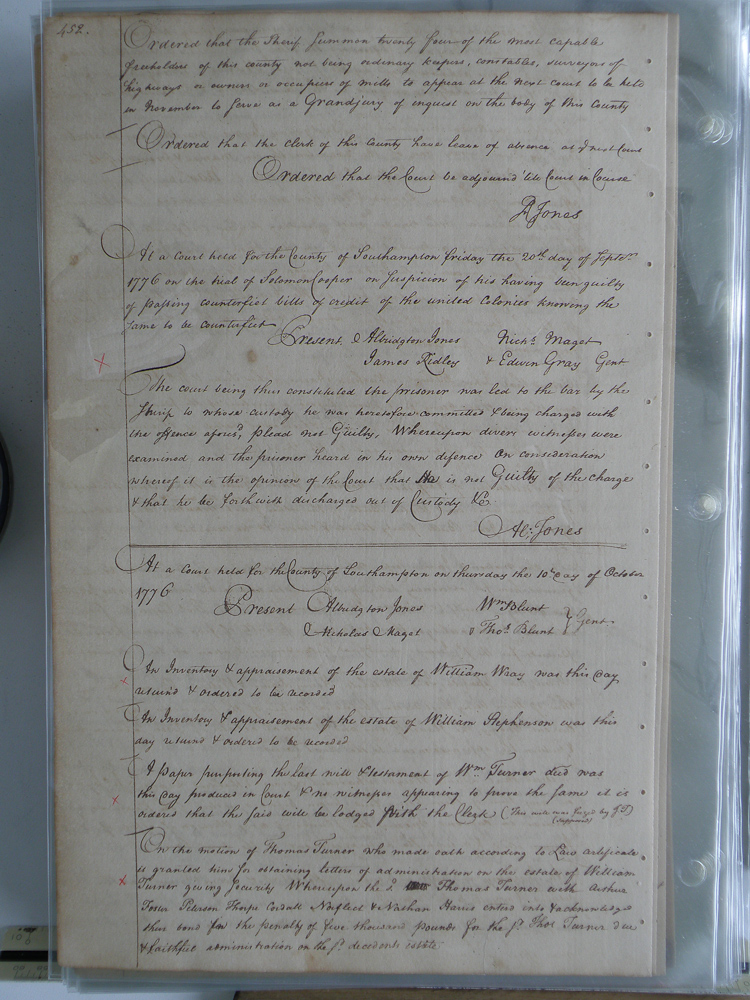 452.
Ordered that the Sherif Summon twenty four of the most capable
freeholders of this county not being ordinary keepers, constables, surveyors of
highways or owners or occupiers of mills to appear at the next court to be held
in November to serve as a Grandjury of inquest on the body of this County
Ordered that the clerk of this County have leave of absence as next Court
Ordered that the Court be adjournd 'till Court in Course
A Jones
At a Court held for the County of Southampton friday the 20th day of Septr
1776 on the trial of Solomon Cooper on Suspicion of his having been guilty
of passing counterfiet bills of credit of the united Colonies knowing the
same to be counterfiet
Present Albridgton Jones Nichs Maget
James Ridley & Edwin Gray Gent
The court being thus constituted the prisoner was led to the bar by the
Sherif to whose custody he was heretofore committed & being charged with
the offence aforsd, plead not Guilty, Whereupon divers witnesses were
examined and the prisoner heard in his own defence On consideration
whereof it is the opinion of the Court that He is not Guilty of the charge
& that he be forthwith discharged out of Custody &c
Al: Jones
At a Court held for the County of Southampton on thursday the 10th day of October
1776
Present Albridgton Jones Wm Blunt
Nicholas Maget & Thos Blunt } Gent
An Inventory & appraisement of the estate of William Wray was this day
returnd & ordered to be recorded
An Inventory & appraisement of the estate of William Stephenson was this
day returnd & ordered to be recorded
A paper purporting the last will & testament of Wm Turner decd was
this day produced in Court & no witnesses appearing to prove the same it is
ordered that the said will be lodged with the Clerk (This will was forged by J T)
(supposed)
On the motion of Thomas Turner who made oath according to Law certificate
is granted him for obtaining letters of administration on the estate of William
Turner giving security Whereupon the sd Thomas Turner with Arthur
Foster Peterson Thorpe Cordall Norfleet & Nathan Harris entred into & acknowledge
their bond in the penalty of five thousand pounds for the sd Thos Turner due
& faithful administration on the sd decedents estate